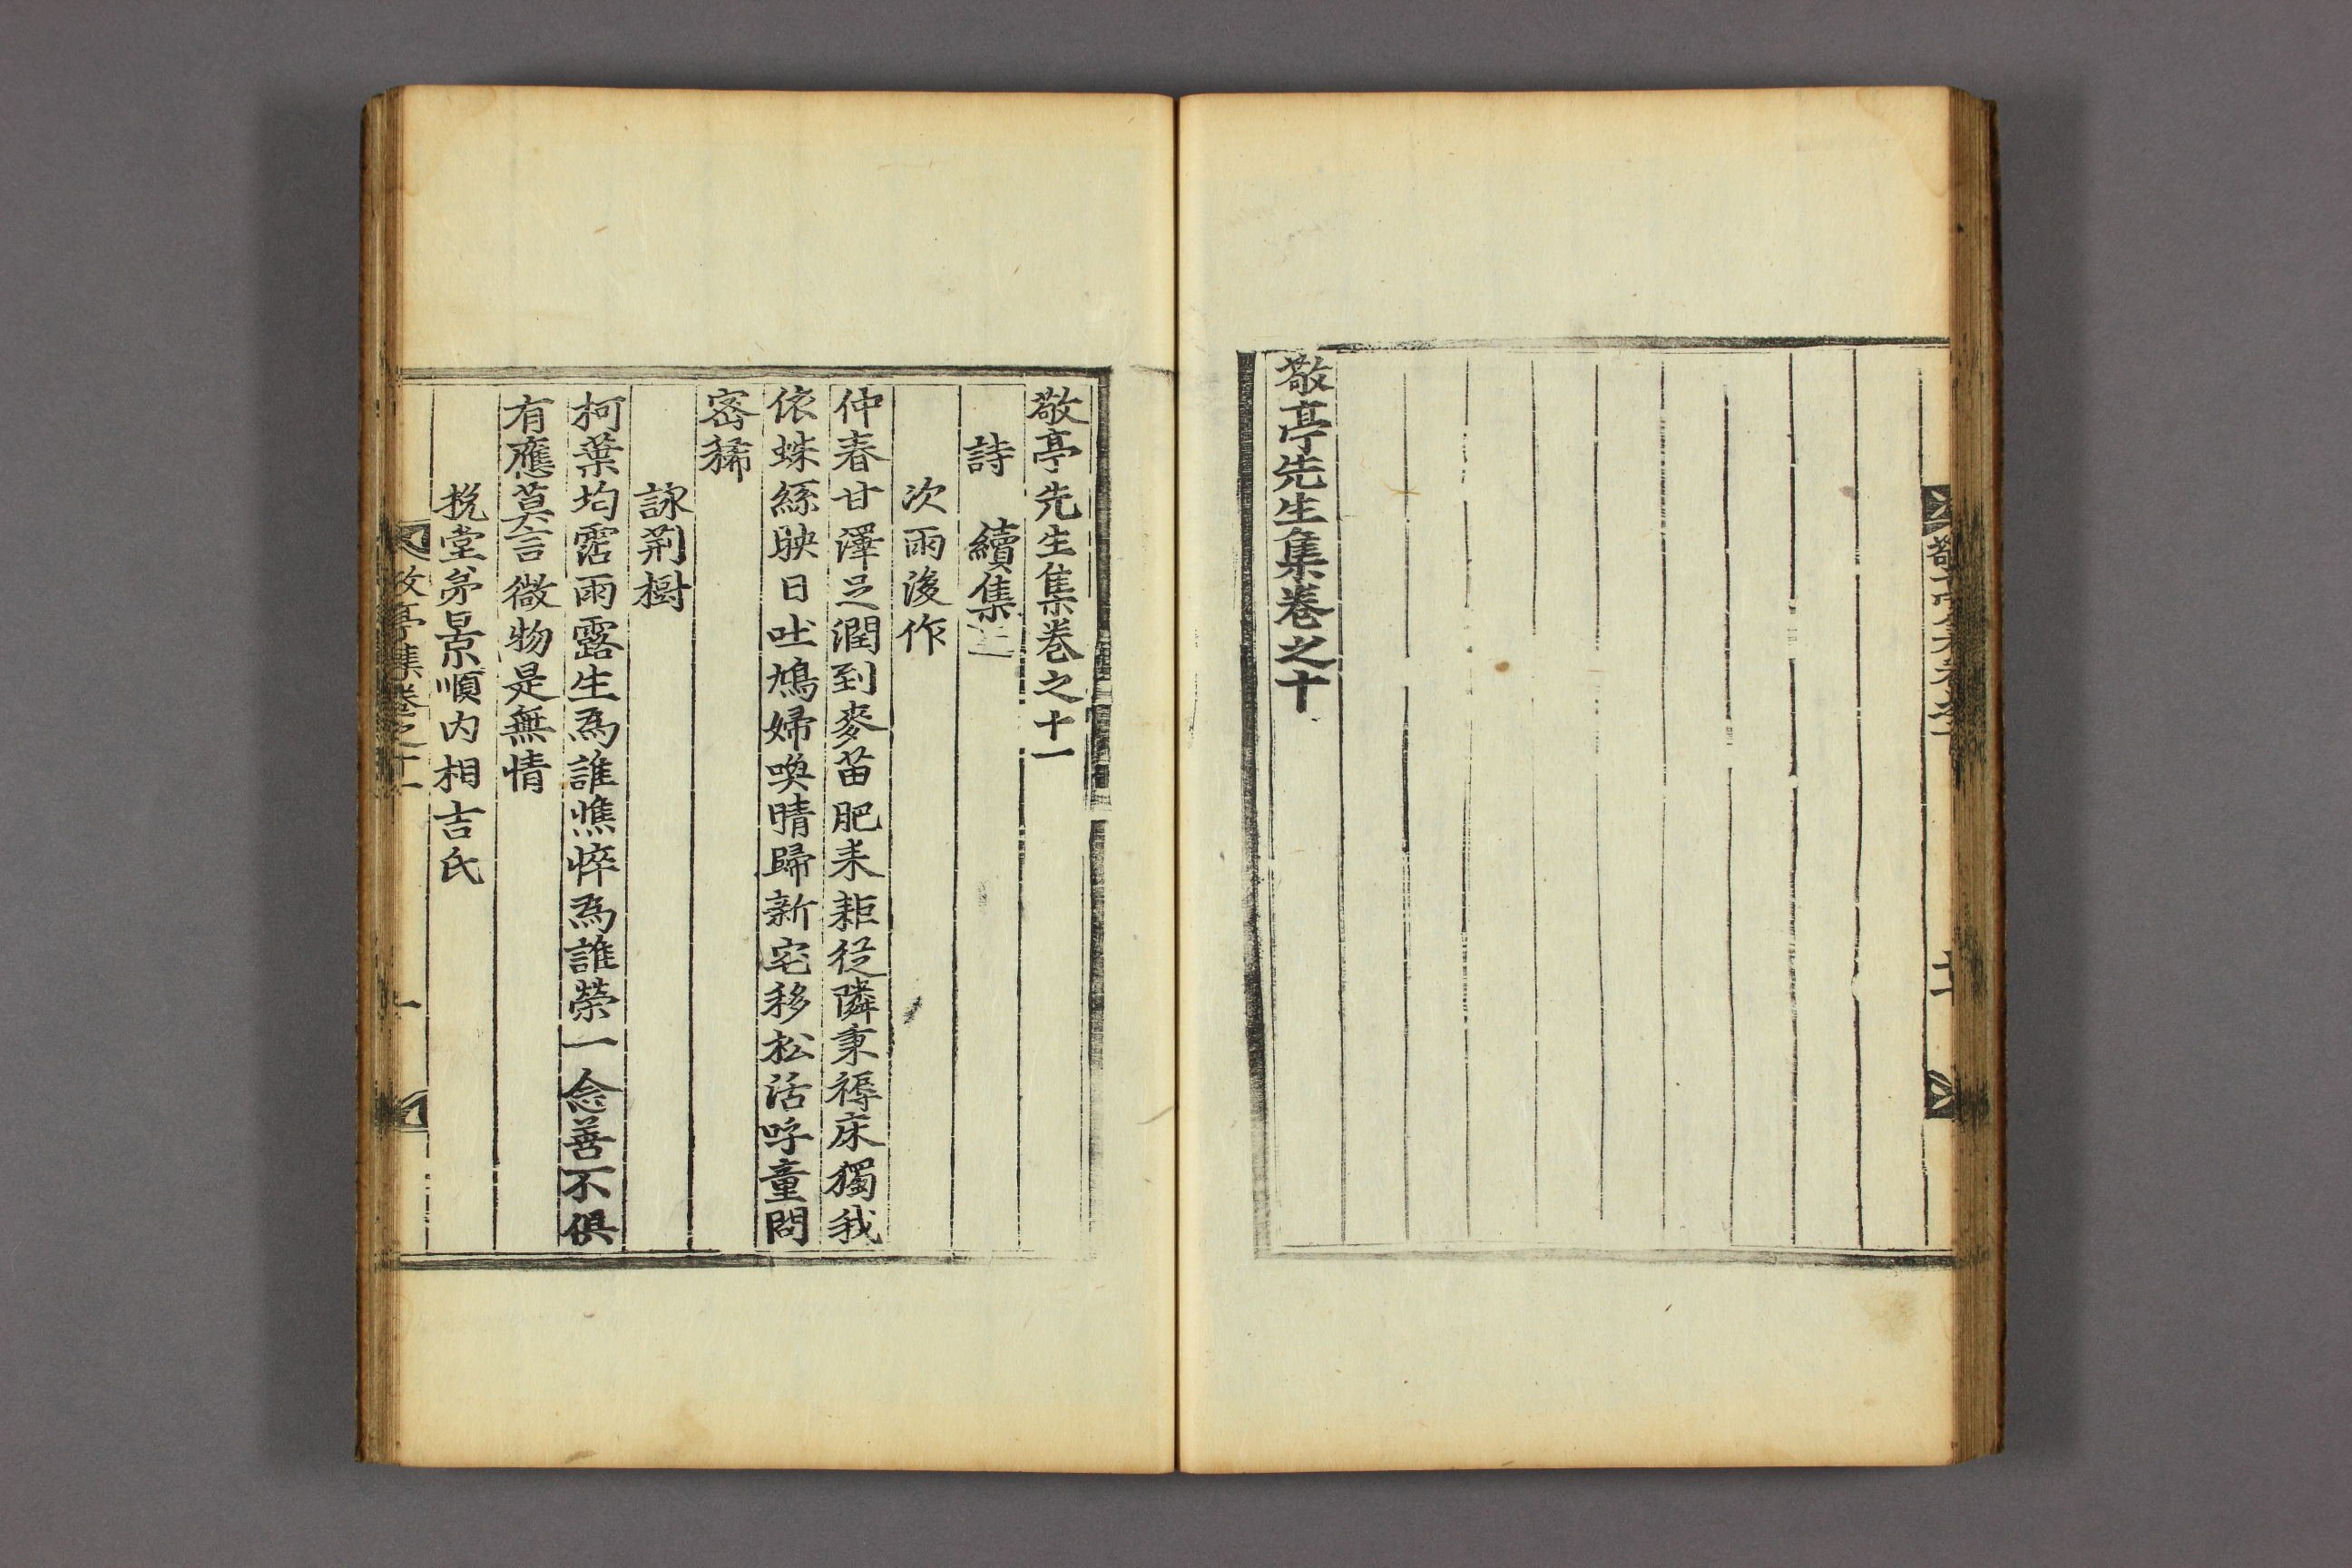 敬亭先生集卷之十
敬亭先生集卷之十一
詩 續集
次雨後作
仲春甘澤足潤到麥苗肥耒耟從隣秉褥床獨我
依蛛絲映日吐鳩婦喚晴歸新宅移松活呼童問
密稀
詠荊樹
柯葉均霑雨露生爲誰憔悴爲誰榮一念善不俱
有應莫言微物是無情
挽堂弟景順內相吉氏
敬亭集卷之十一 一